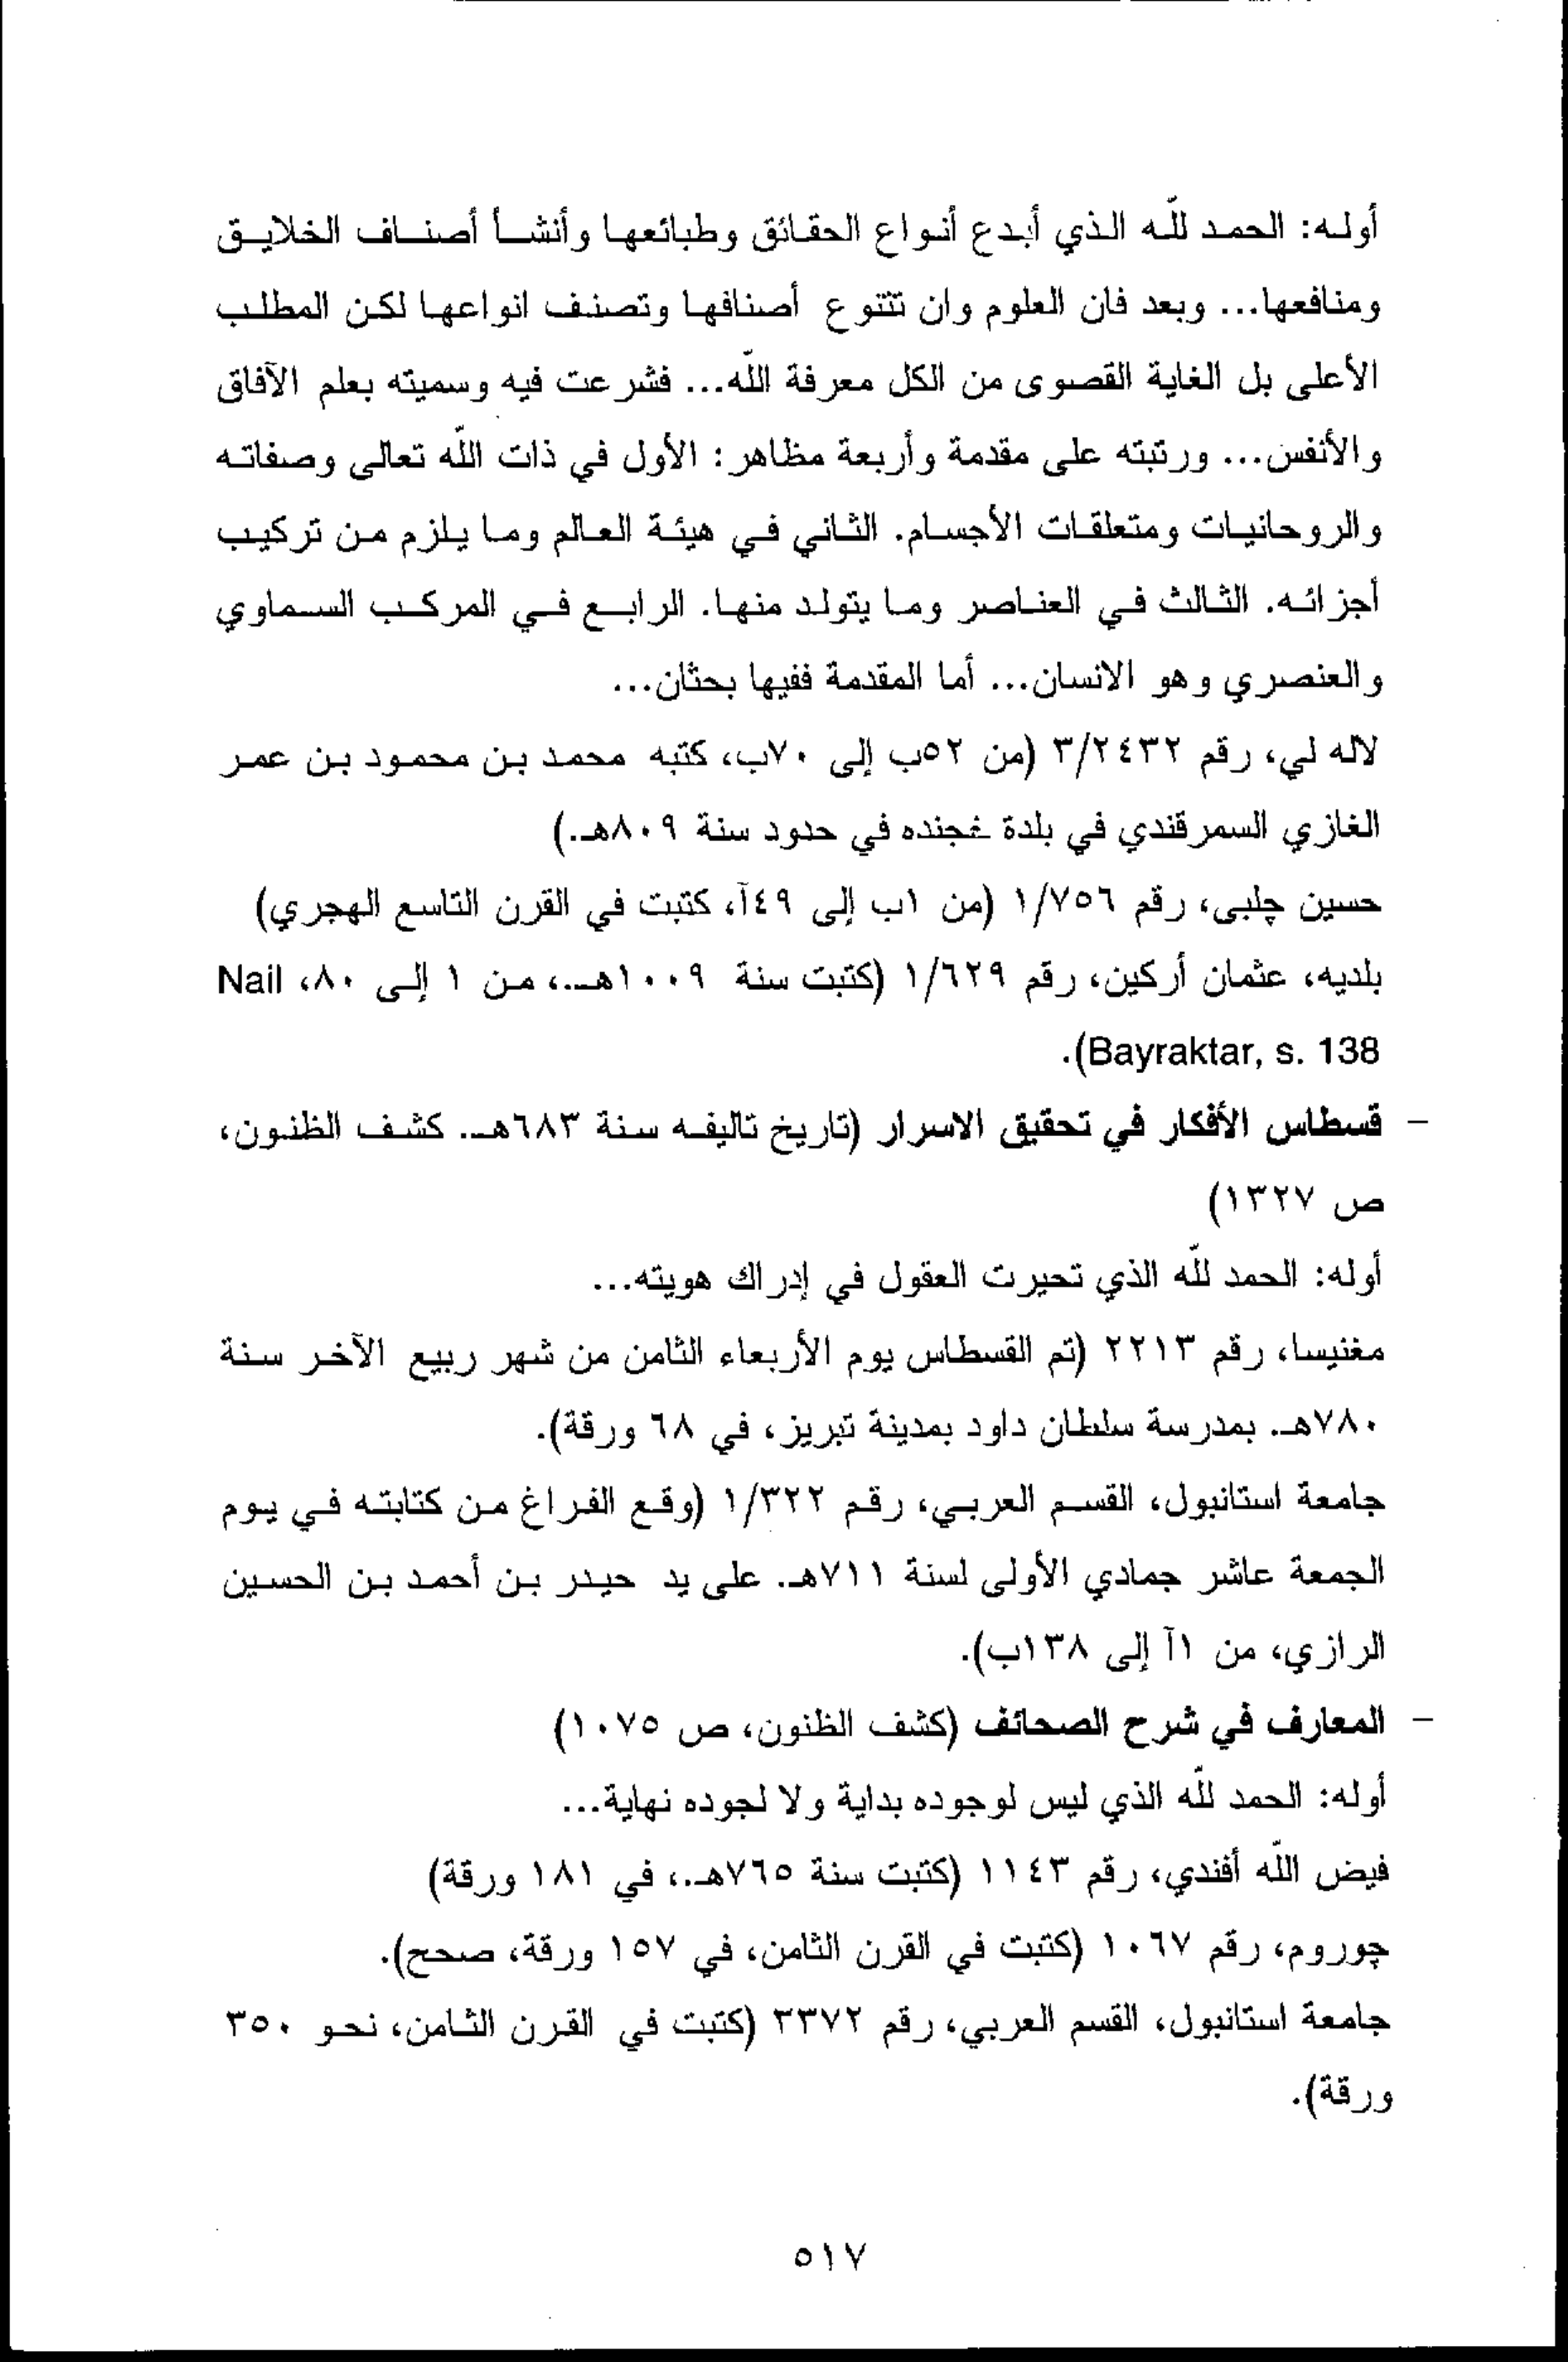 أوله: الحمد للّه الذي أبدع أنواع الحقائق وطبائعها وأنشأ أصناف الخلايق
ومنافعها... وبعد فان العلوم وان تتنوع أصنافها وتصنف انواعها لكن المطلب
الأعلى بل الغاية القصوى من الكل معرفة اللّه... فشرعت فيه وسميته بعلم الآفاق
والأنفس... ورتبته على مقدمة وأربعة مظاهر: الأول في ذات اللّه تعالى وصفاته
والروحانيات ومتعلقات الأجسام. الثاني في هيئة العالم وما يلزم من تركيب
أجزائه. الثالث في العناصر وما يتولد منها. الرابع في المركب السماوي
والعنصري وهو الانسان... أما المقدمة ففيها بحثان...
لاله لي، رقم ٣/٢٤٣٢ (من ٥٢ب إلى ٧٠ب، كتبه محمد بن محمود بن عمر
الغازي السمرقندي في بلدة غجنده في حدود سنة ٨٠٩هـ.)
حسين چلبى، رقم ١/٧٥٦ (من ١ب إلى ٤٩آ، كتبت في القرن التاسع الهجري)
بلديه، عثمان أركين، رقم ١/٦٢٩ (كتبت سنة ١٠٠٩هـ.، من ١ إلى ٨٠، Nail
Bayraktar, s. 138).
– قسطاس الأفكار في تحقيق الاسرار (تاريخ تاليفه سنة ٦٨٣هـ.. كشف الظنون،
ص ١٣٢٧)
أوله: الحمد للّه الذي تحيرت العقول في إدراك هويته...
مغنيسا، رقم ٢٢١٣ (تم القسطاس يوم الأربعاء الثامن من شهر ربيع الآخر سنة
٧٨٠هـ. بمدرسة سلطان داود بمدينة تبريز، في ٦٨ ورقة).
جامعة استانبول، القسم العربي، رقم ١/٣٢٢ (وقع الفراغ من كتابته في يوم
الجمعة عاشر جمادي الأولى لسنة ٧١١هـ. على يد حيدر بن أحمد بن الحسين
الرازي، من ١آ إلى ١٣٨ب).
– المعارف في شرح الصحائف (كشف الظنون، ص ١٠٧٥)
أوله: الحمد للّه الذي ليس لوجوده بداية ولا لجوده نهاية...
فيض اللّه أفندي، رقم ١١٤٣ (كتبت سنة ٧٦٥هـ.، في ١٨١ ورقة)
چوروم، رقم ١٠٦٧ (كتبت في القرن الثامن، في ١٥٧ ورقة، صحح).
جامعة استانبول، القسم العربي، رقم ٣٣٧٢ (كتبت في القرن الثامن، نحو ٣٥٠
ورقة).
٥١٧